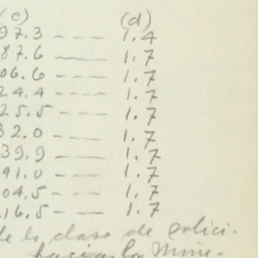 (c) (d)
97.3 ---- 1.4
87.6 ---- 1.7
06.6 ---- 1.7
24.4 ---- 1.7
25.5 ---- 1.7
32.0 ---- 1.7
39.9 ---- 1.7
91.0 ---- 1.7
04.5 ---- 1.7
16.5 ---- 1.7
de la clase de solici-
hacia la Mine-